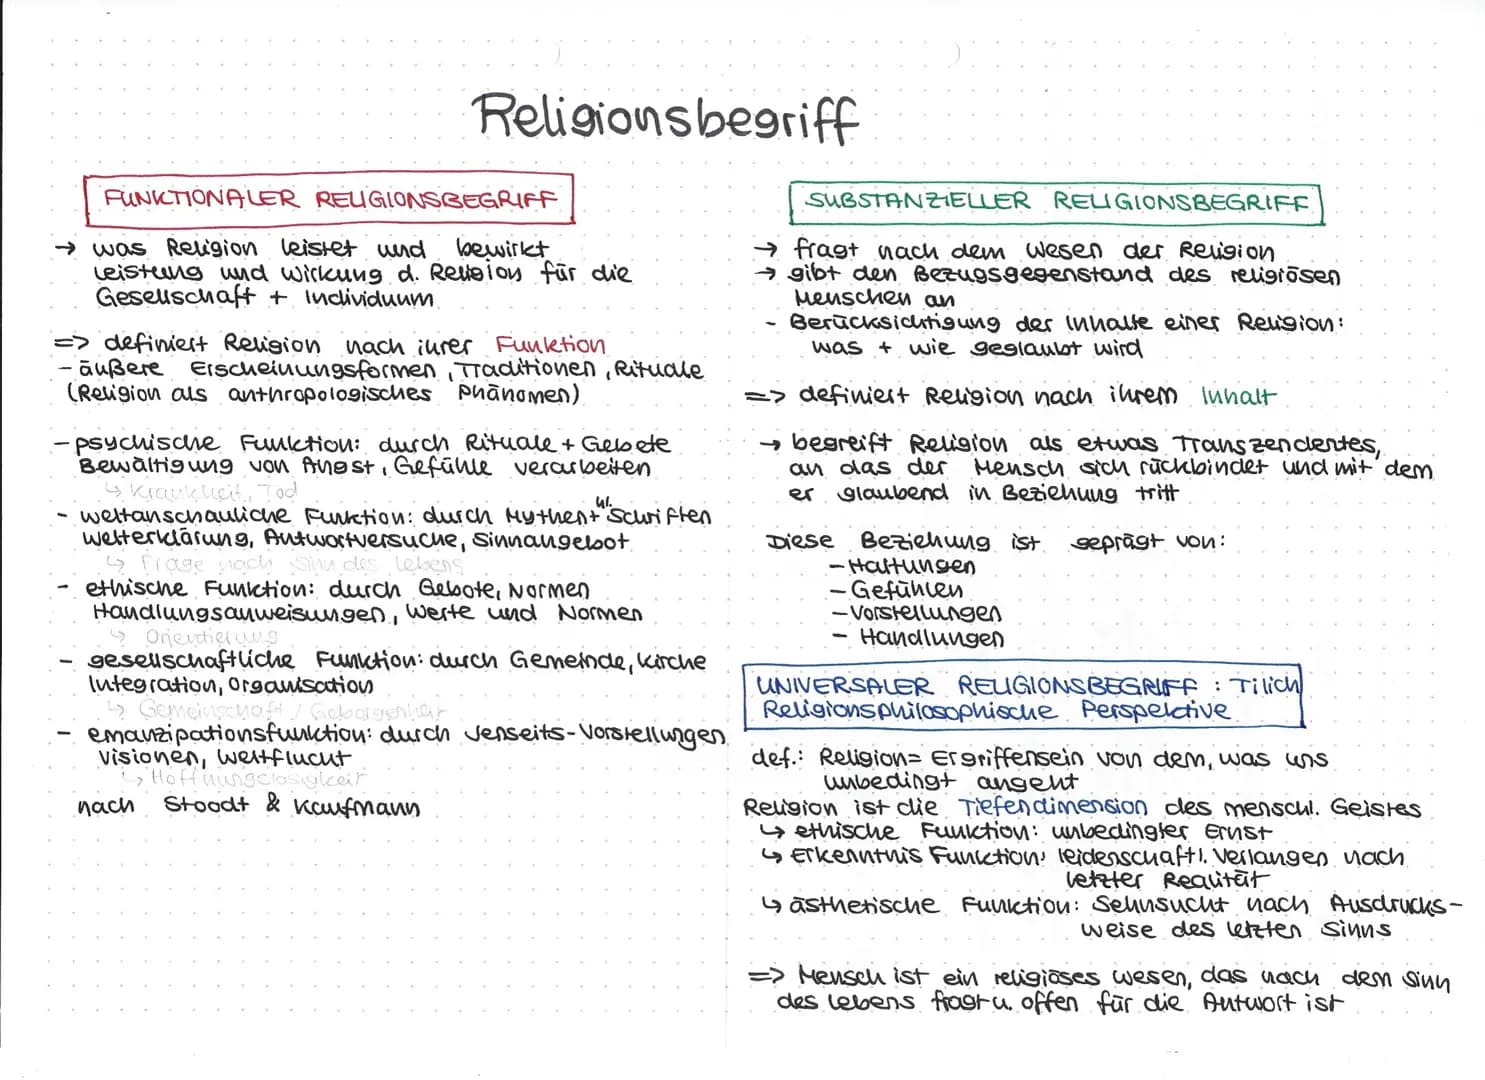 Religionsbegriff
FUNKTIONALER RELIGIONSBEGRIFF
→ was Religion leistet und bewirkt
Leistung und Wirkung d. Religion für die
Gesellschaft + Individuum
=> definiert Religion nach ihrer Funktion
- äußere Erscheinungsformen, Traditionen, Rituale
(Religion als anthropologisches Phänomen)
- psychische Funktion: durch Rituale + Gebete
Bewältigung von Angst, Gefühle verarbeiten
↳ Krankheit, Tod
- weltanschauliche Funktion: durch Mythen + hl. Schriften
Welterklärung, Antwortversuche, Sinnangebot
↳ Frage nach Sinn des Lebens
- ethische Funktion: durch Gebote, Normen
Handlungsanweisungen, Werte und Normen
↳ Orientierung
- gesellschaftliche Funktion: durch Gemeinde, Kirche
Integration, Organisation
↳ Gemeinschaft / Geborgenheit
- emanzipationsfunktion: durch Jenseits-Vorstellungen
Visionen, Weltflucht
↳ Hoffnungslosigkeit
nach Stoodt & Kaufmann
SUBSTANZIELLER RELIGIONSBEGRIFF
→ fragt nach dem Wesen der Religion
→ gibt den Bezugsgegenstand des religiösen
Menschen an
- Berücksichtigung der Inhalte einer Religion:
was + wie geglaubt wird
=> definiert Religion nach ihrem Inhalt
→ begreift Religion als etwas Transzendentes,
an das der Mensch sich rückbindet und mit dem
er glaubend in Beziehung tritt
Diese Beziehung ist geprägt von:
- Haltungen
- Gefühlen
- Vorstellungen
- Handlungen
UNIVERSALER RELIGIONSBEGRIFF : Tilich
Religionsphilosophische Perspektive
def.: Religion= Ergriffensein von dem, was uns
unbedingt angeht
Religion ist die Tiefendimension des menschl. Geistes
↳ ethische Funktion: unbedingter Ernst
↳ Erkenntnis Funktion: leidenschaftl. Verlangen nach
letzter Realität
↳ ästhetische Funktion: Sehnsucht nach Ausdrucks-
weise des letzten Sinns
=> Mensch ist ein religiöses Wesen, das nach dem Sinn
des Lebens fragt u. offen für die Antwort ist